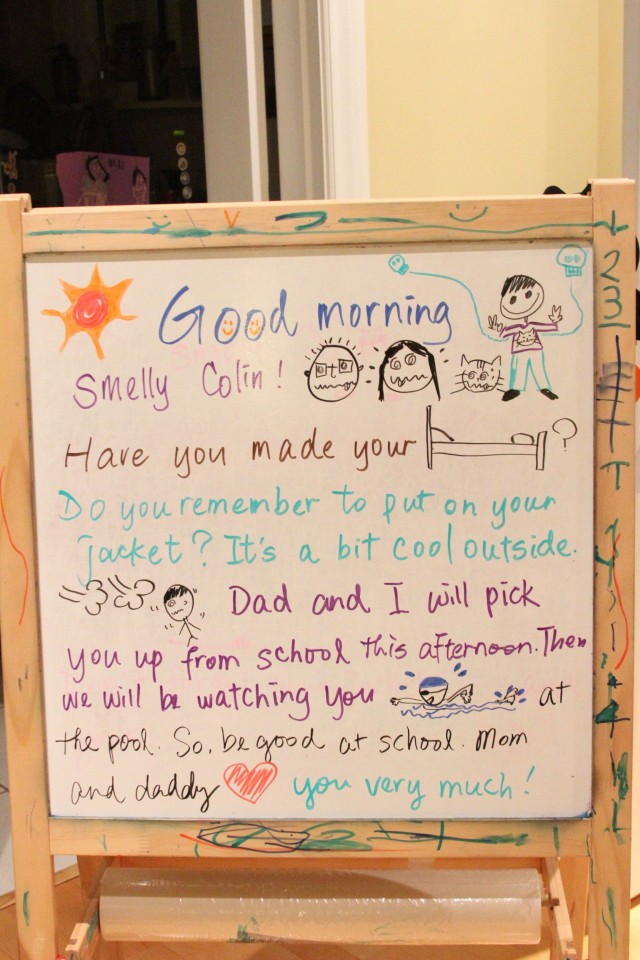 Good morning
Smelly Colin!
Have you made your ?
Do you remember to put on your
jacket? It's a bit cool outside.
Dad and I will pick
you up from school this afternoon. Then
we will be watching you at
the pool. So, be good at school. Mom
and daddy you very much!